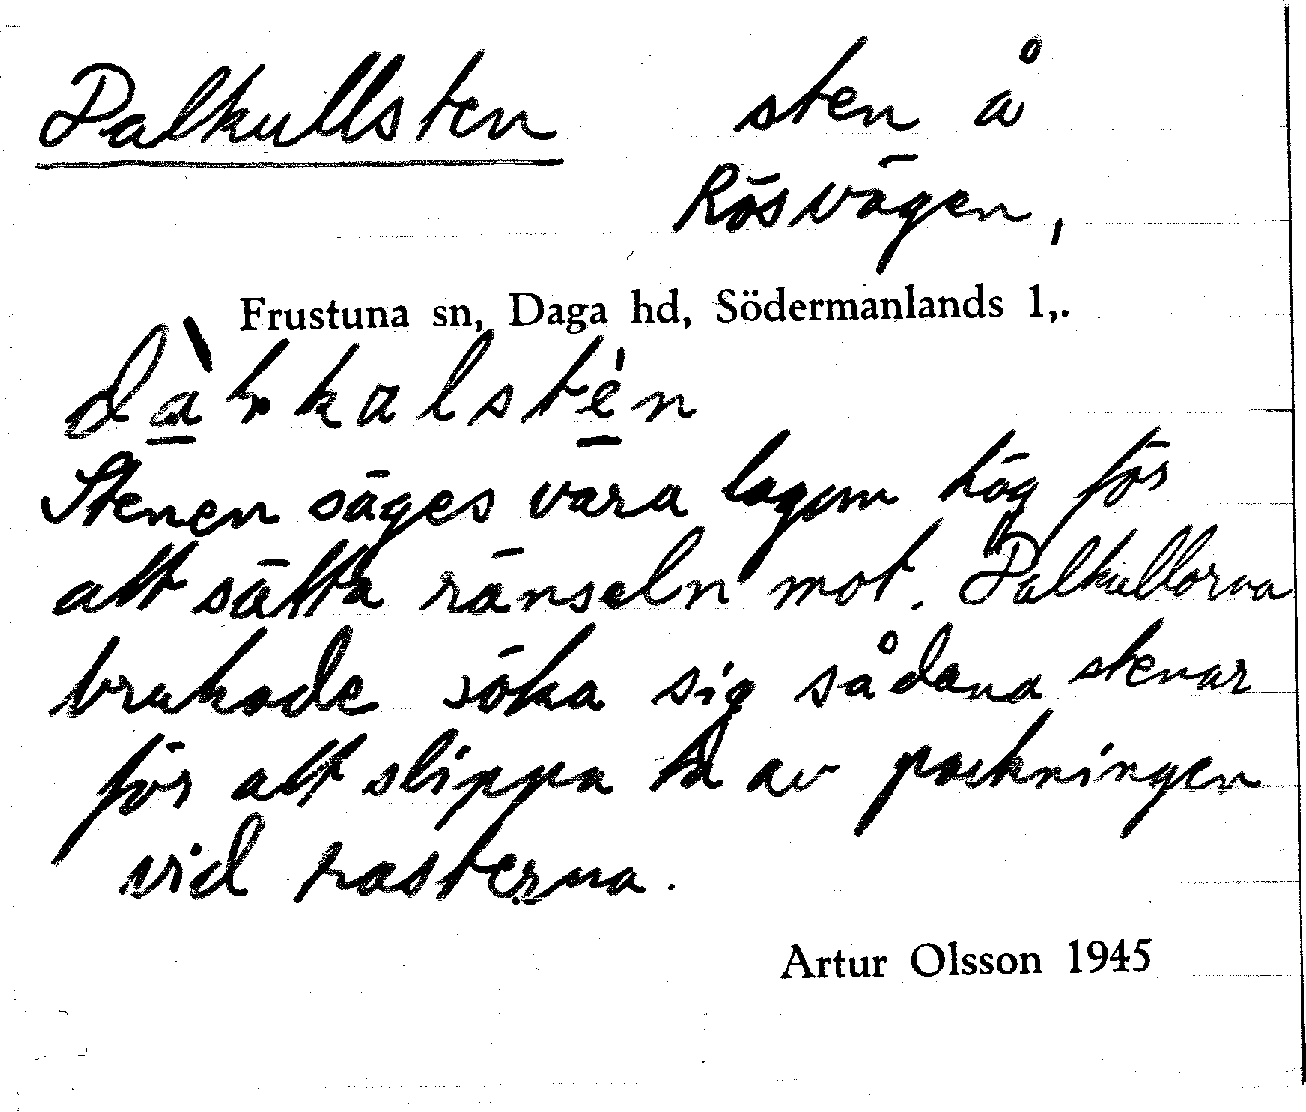 Dalkullsten sten å
Rösvägen,
Frustuna sn, Daga hd, Södermanlands l,.
Stenen säges vara lagom hög för
att sätta ränseln mot. Dalkullorna
brukade söka sig sådana stenar
för att slippa ta av packningen
vid rasterna.
Artur Olsson 1945